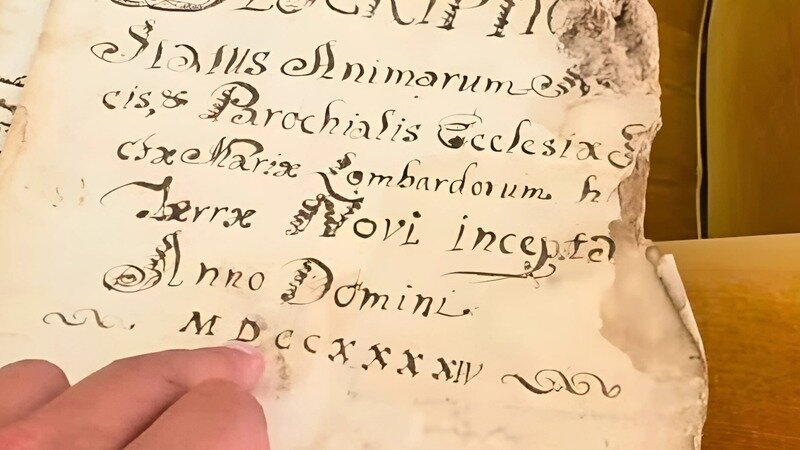 DESCRIPTIO
Status Animarum
cis, & Parochialis Ecclesiæ S
ctæ Mariæ Lombardorum h
Terræ Novi incepta
Anno Domini
MDCCXXXXIV